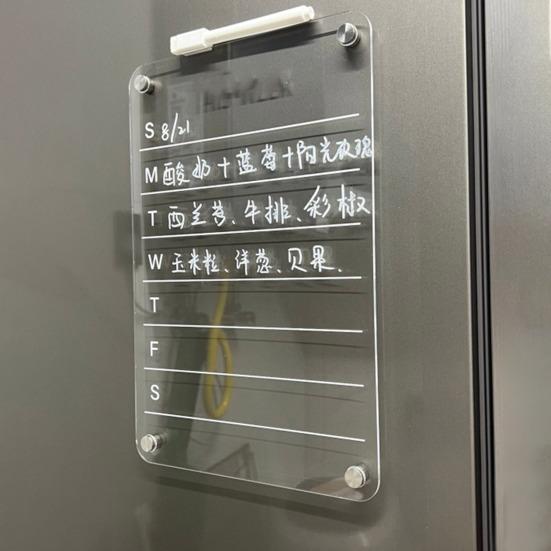 S 8/21
M 酸奶+蓝莓+阳光玫瑰
T 西兰苔、牛排、彩椒
W 玉米粒、洋葱、贝果.
T
F
S